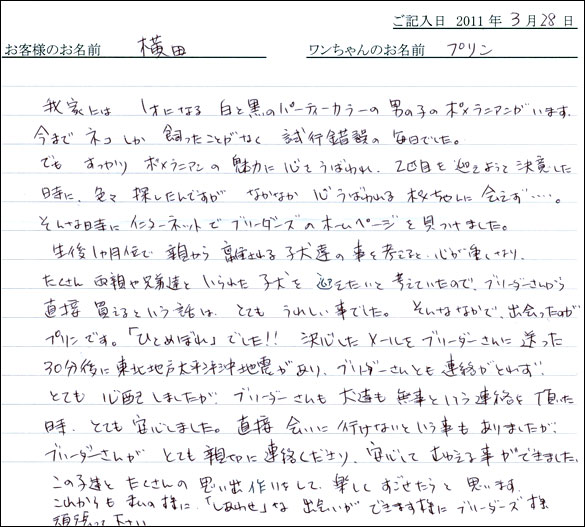 ご記入日 2011 年 3 月 28 日
お客様のお名前 横田 ワンちゃんのお名前 プリン
我家には 1才になる 白と黒のパーティーカラーの男の子のポメラニアンがいます。
今まで ネコしか 飼ったことがなく 試行錯誤の毎日でした。
でも すっかり ポメラニアンの魅力に心をうばわれ、2匹目を迎えようと決意した
時に、色々 探したんですが なかなか 心うばわれる ポメちゃんに会えず……。
そんな時に インターネットで ブリーダーズのホームページを見つけました。
生後1ヶ月位で 親から 離される 子犬達の事を考えると、心が重くなり、
たくさん 両親や兄弟達と いられた 子犬を 迎えたいと考えていたので、ブリーダーさんから
直接 買えるという話は、とても うれしい事でした。そんななかで、出会ったのが
プリンです。「ひとめぼれ」でした!! 決心した メールをブリーダーさんに送った
30分後に東北地方太平洋沖地震があり、ブリーダーさんとも連絡がとれず、
とても 心配しましたが、ブリーダーさんも 犬達も 無事という連絡を頂いた
時、とても 安心しました。直接 会いに行けないという事もありましたが、
ブリーダーさんが とても 親切に連絡くださり、安心して むかえる事ができました。
この子達と たくさんの 思い出作りをして、楽しく すごせたらと 思います。
これからも の様に、「しあわせ」な 出会いが できます様に ブリーダーズさま
頑張って下さい